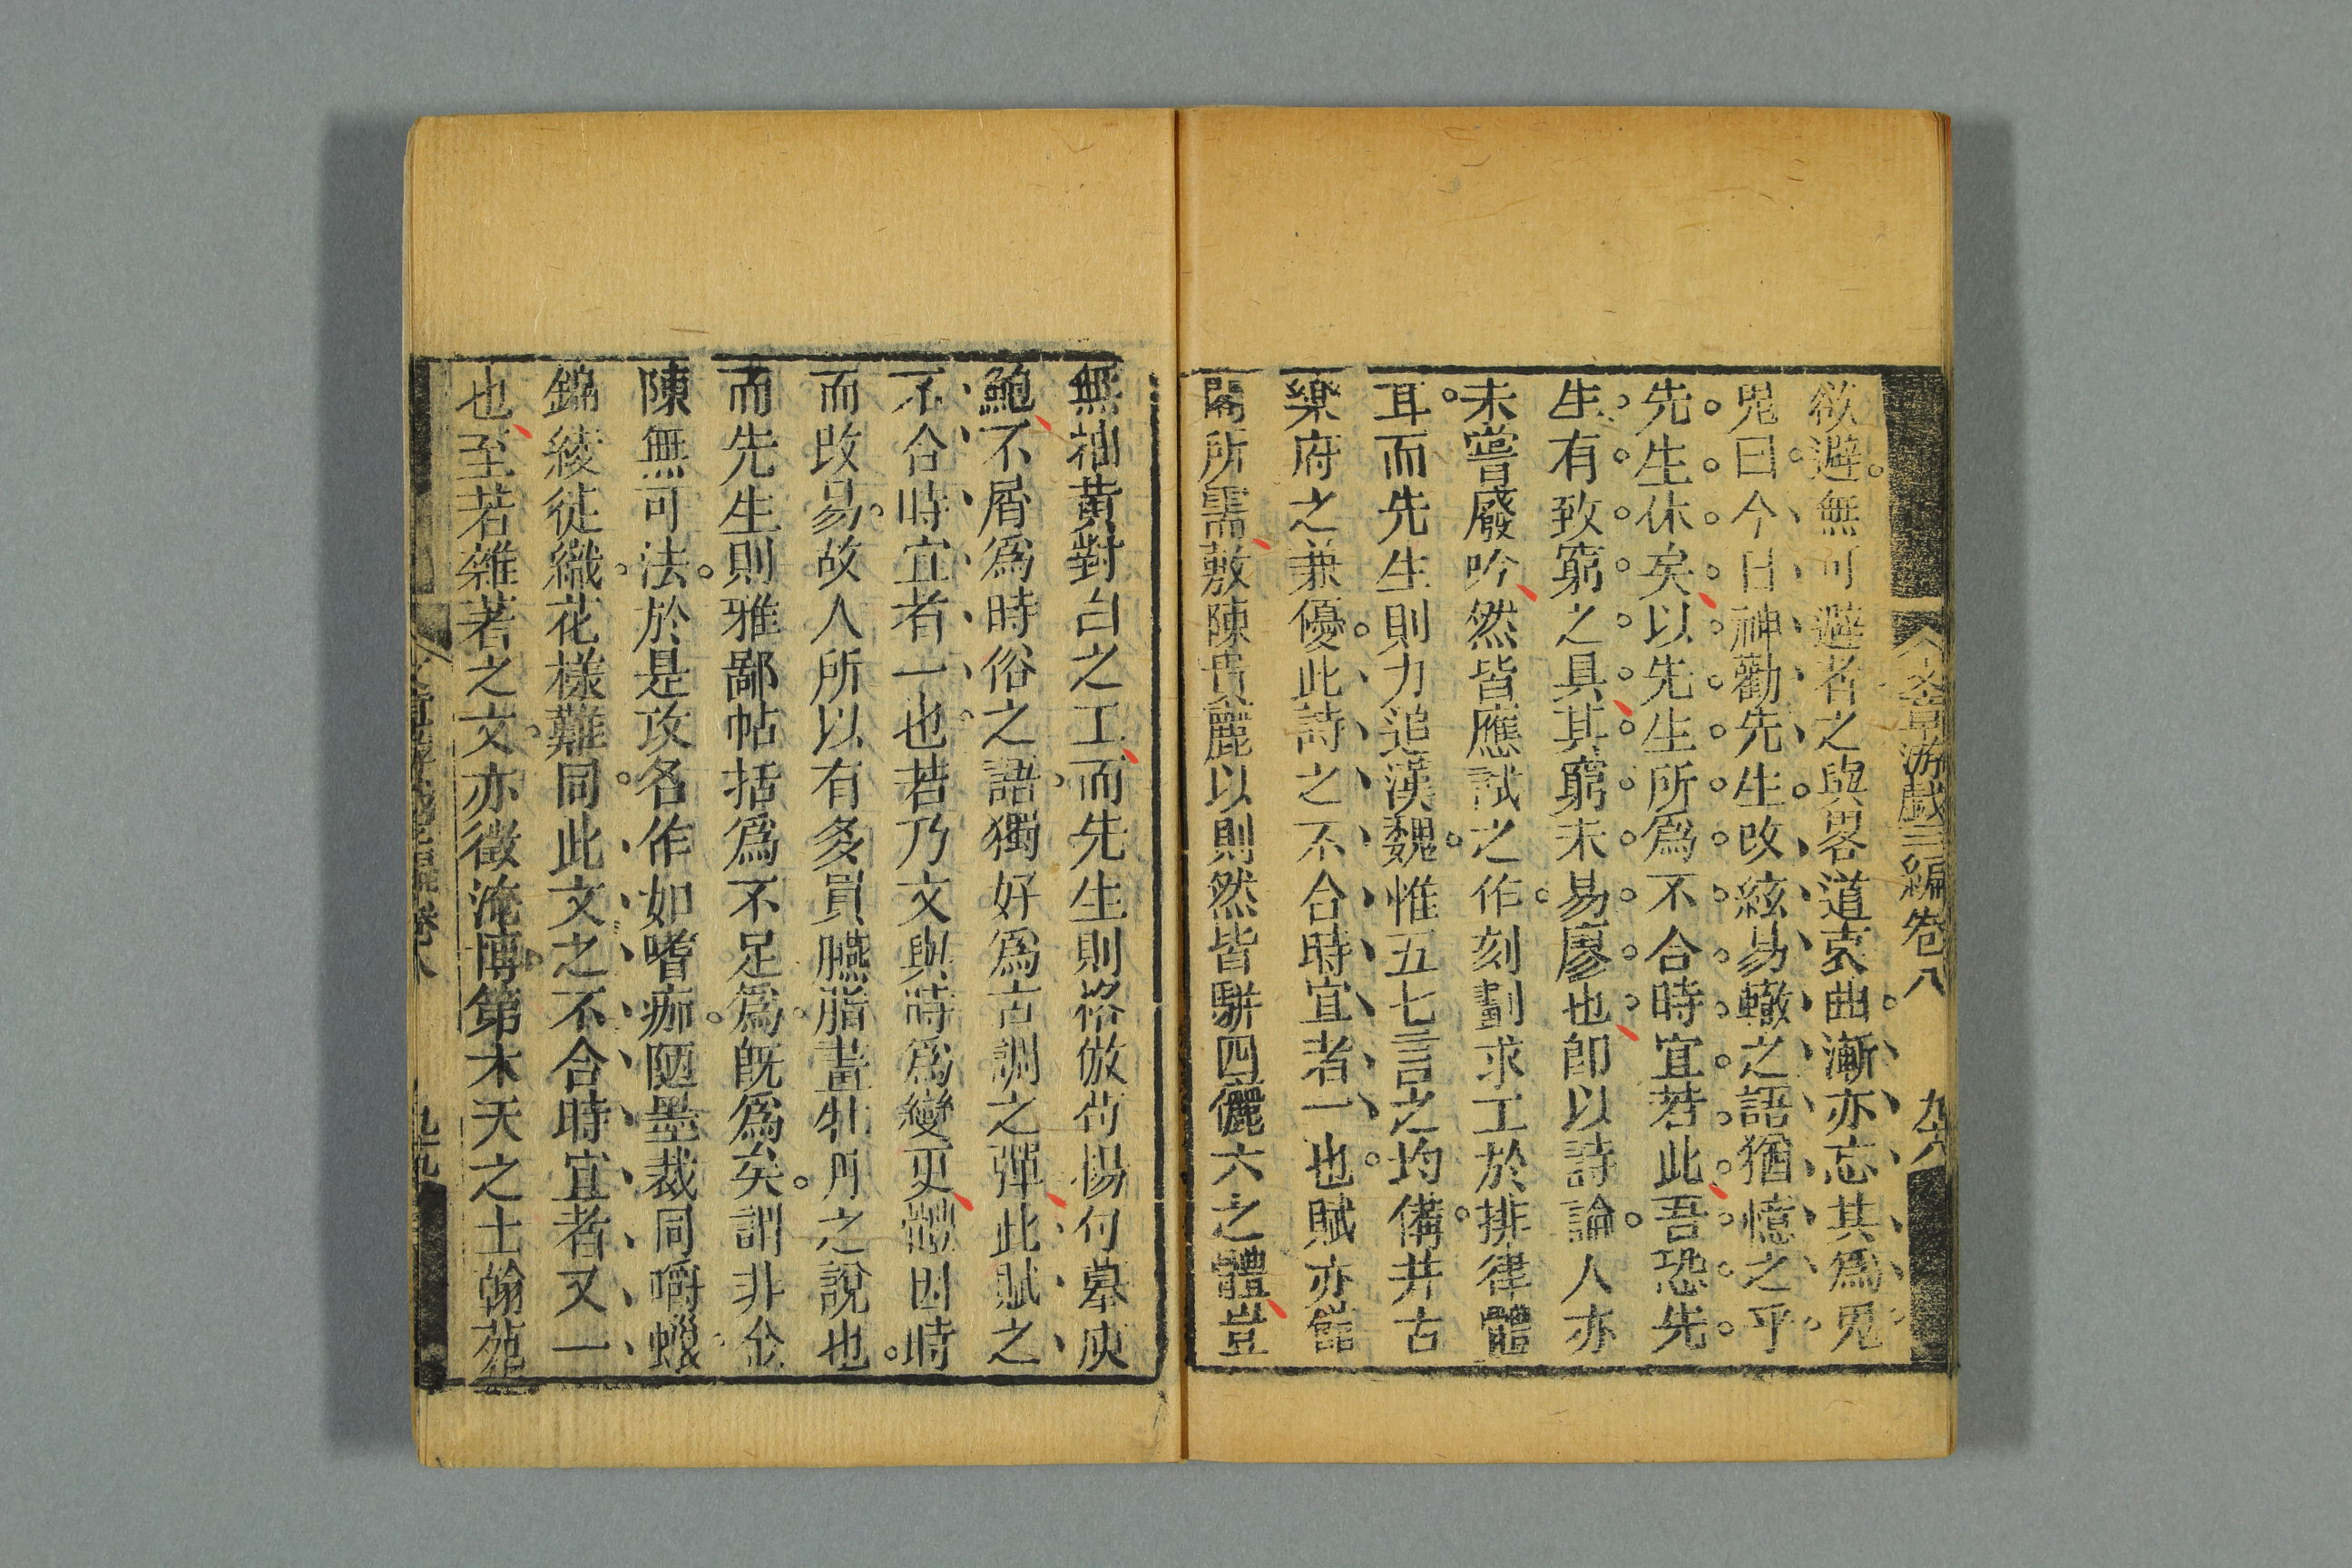 文章游戲三編卷八 九八
欲避無可避者之與畧道哀曲漸亦忘其爲鬼
鬼曰今日神勸先生改絃易轍之語猶憶之乎
先生休矣以先生所爲不合時宜若此吾恐先
生有致窮之具其窮未易廖也卽以詩論人亦
未嘗廢吟然皆應試之作刻劃求工於排律體
耳而先生則力追漢魏惟五七言之均備井古
樂府之兼優此詩之不合時宜者一也賦亦館
閣所需敷陳貴麗以則然皆騈四儷六之體豈
無抽黃對白之工而先生則格倣荀楊何摹庾
鮑不屑爲時俗之語獨好爲古調之彈此賦之
不合時宜者一也若乃文與時爲變更體因時
而改易故人所以有多買臙脂畫牡丹之說也
而先生則雅鄙帖括爲不足爲既爲矣謂非金
陳無可法於是攻各作如嗜痂陋墨裁同嚼蠟
錦綾徒織花樣難同此文之不合時宜者又一
也至若雜著之文亦徵淹博第木天之士翰苑